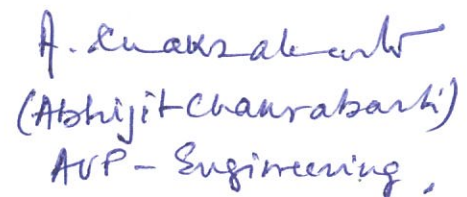 A. Chakrabarti
(Abhijit Chakrabarti)
AVP - Engineering,